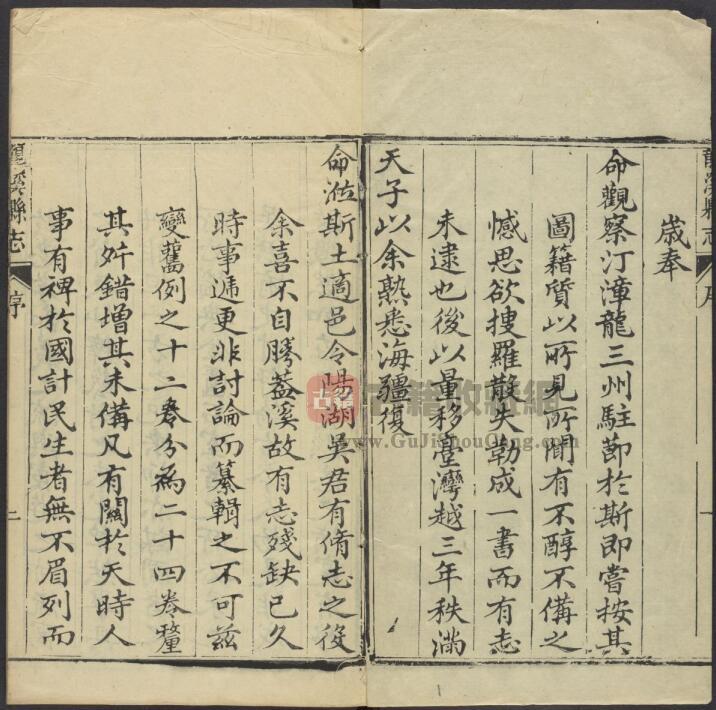 龍溪縣志
序
一
歲奉
命觀察汀漳龍三州駐節於斯即嘗按其
圖籍質以所見所聞有不醇不備之
憾思欲搜羅散失勒成一書而有志
未逮也後以量移臺灣越三年秩滿
天子以余熟悉海疆復
命涖斯土適邑令陽湖吳君有脩志之役
余喜不自勝葢溪故有志殘缺已久
時事遞更非討論而纂輯之不可兹
變舊例之十二卷分為二十四卷釐
其舛錯增其未備凡有關於天時人
事有裨於國計民生者無不眉列而
龍溪縣志
序
二
古籍收藏網
www.GuJiShouCang.com